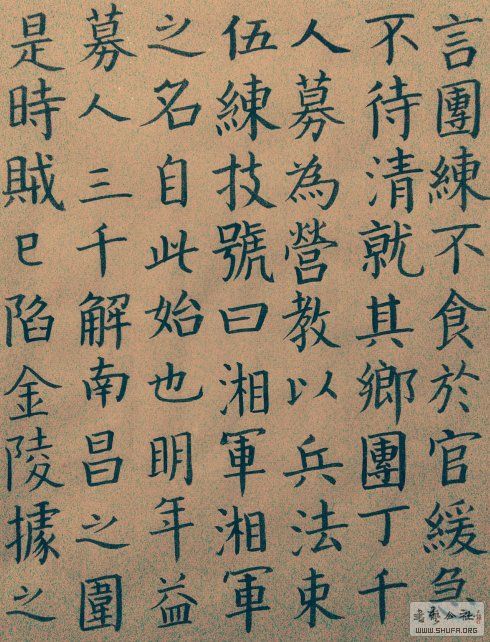 言團練不食於官緩急
不待清就其鄉團丁千
人募為營教以兵法束
伍練技號曰湘軍湘軍
之名自此始也明年益
募人三千解南昌之圍
是時賊已陷金陵據之
WWW.SHUFA.ORG